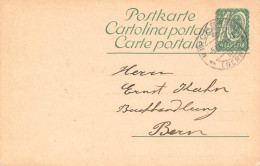 Postkarte
Cartolina postale
Carte postale
HELVETIA
Herrn
Ernst Kuhn
Buchhandlung
Bern